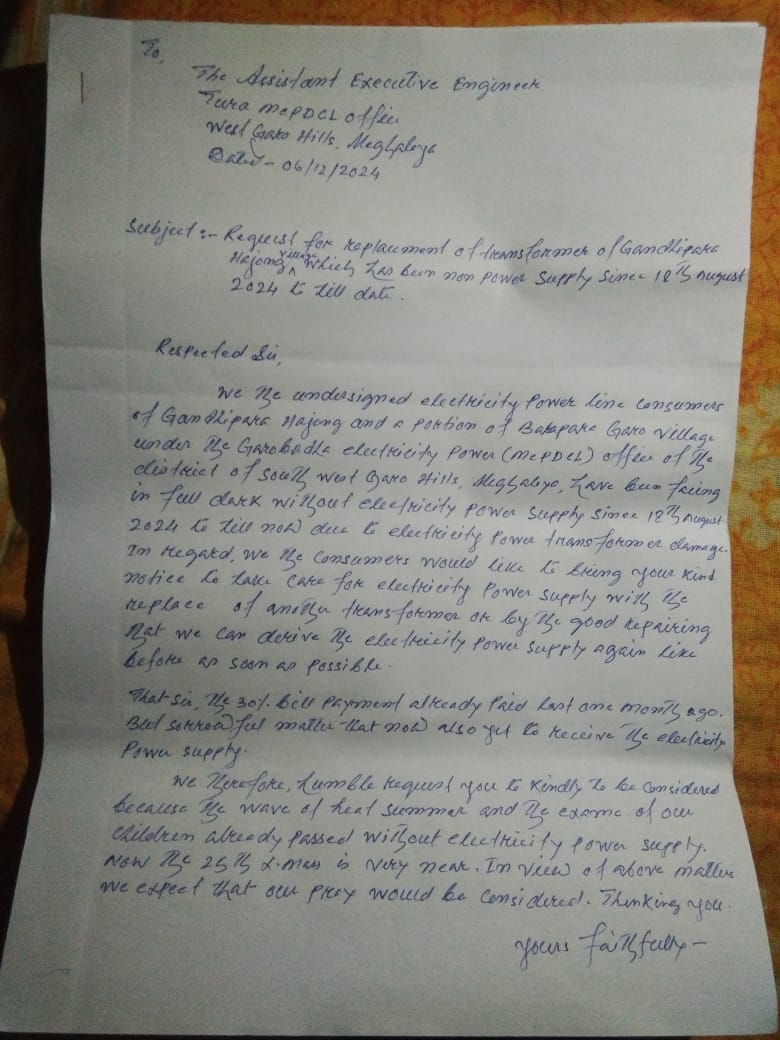 To,
The Assistant Executive Engineer
Tura MePDCL office
West Garo Hills, Meghalaya
Dated - 06/12/2024
Subject :- Request for replacment of transformer of Gandhipara
Hajong village which has been non power supply since 18th August
2024 to till date.
Respected Sir,
We the undersigned electricity power line consumers
of Gandhipara Hajong and a portion of Barapara Garo village
under the Garobadha electricity power (MePDCL) office of the
district of South West Garo Hills, Meghalaya, have been facing
in full dark without electricity power supply since 18th August
2024 to till now due to electricity power transformer damage.
In regard, we the consumers would like to bring your kind
notice to take care for electricity power supply with the
replace of another transformer or by the good repairing
that we can derive the electricity power supply again like
before as soon as possible.
That Sir, the 30% bill payment already paid last one month ago.
But sorrowful matter that now also yet to receive the electricity
power supply.
We therefore, humble request you to kindly to be considered
because the wave of heat summer and the exams of our
children already passed without electricity power supply.
Now the 25th X-mass is very near. In view of above matters
we expect that our prey would be considered. Thinking you.
yours faithfully -